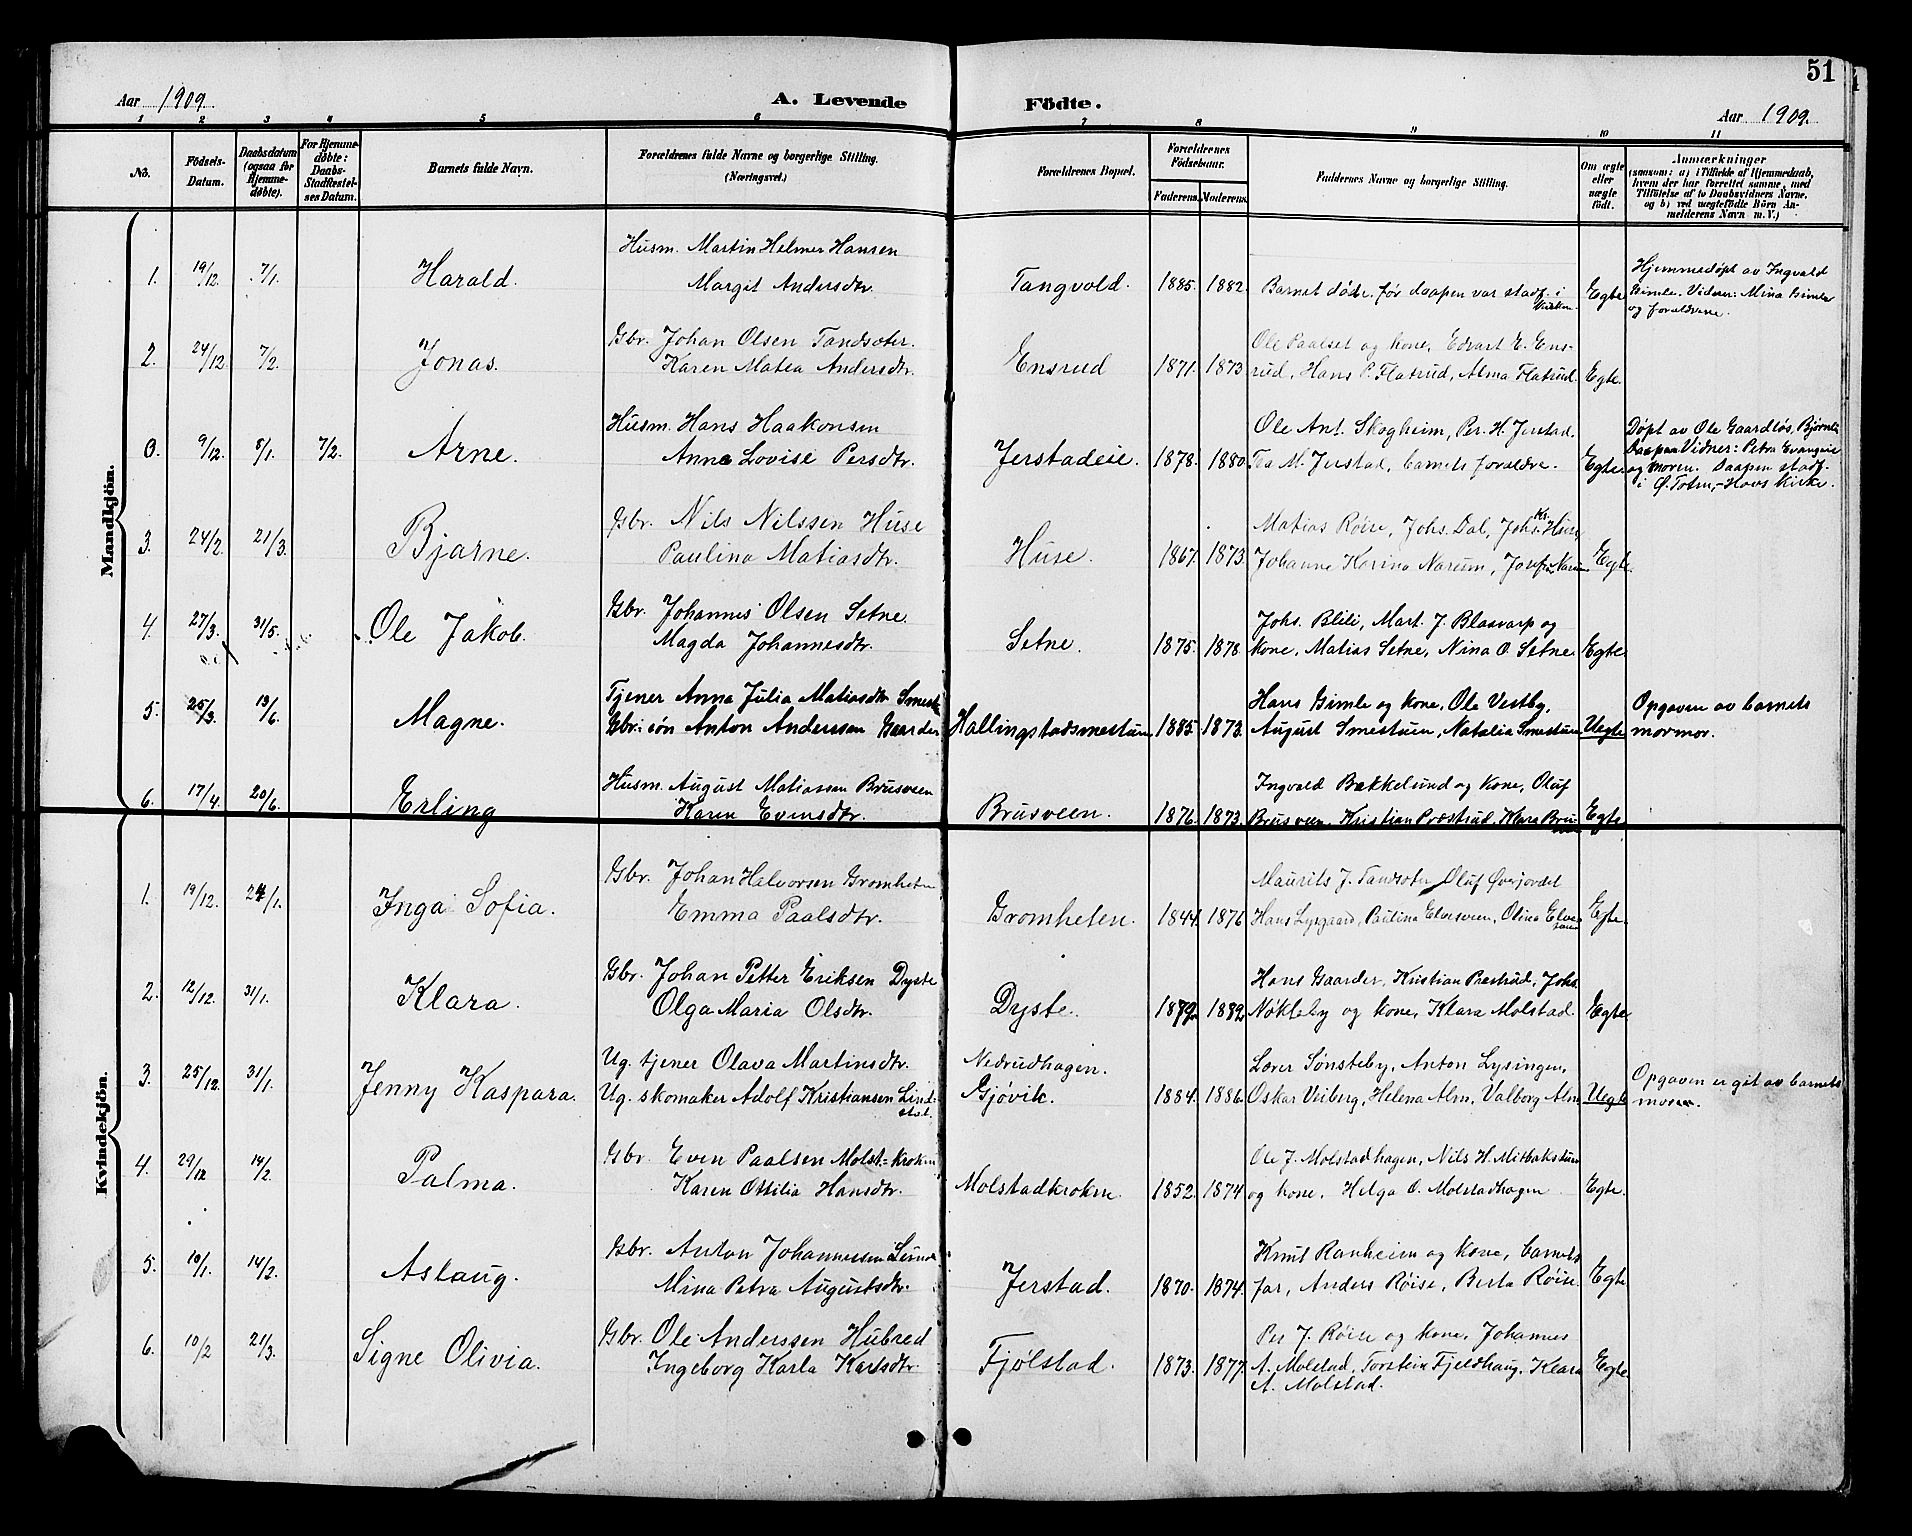 51
Aar 1909.
A. Levende Födte.
Aar 1909.
1 2 3 4 5 6 7 8 9 10 11
No.
Födsels-Datum.
Daabsdatum (ogsaa for Hjemmedøbte).
For Hjemmedøbte: Daabs-Stadfæstelses Datum.
Barnets fulde Navn.
Forældrenes fulde Navne og borgerlige Stilling.
(Næringsvei.)
Forældrenes Bopæl.
Forældrenes Födselsaar.
Faderens. Moderens.
Faddernes Navne og borgerlige Stilling.
Om ægte eller uægte födt.
Anmærkninger
(saasom: a) i Tilfælde af Hjemmedaab,
hvem der har forrettet samme, med
Tilföielse af to Daabsvidners Navne,
og b) ved uægtefödte Börn An-
melderens Navn m. V.)
Mandkjön.
1. 19/12. 7/1. Harald.
Husm. Martin Helmer Hansen
Margit Andersdtr.
Tangvold. 1885. 1882.
Barnet døde før daapen var stadf. i Kirken
Egte
Hjemmedøpt av Ingvald
Gimle. Vidner: Mina Gimle
og forældrene.
2. 24/12. 7/2. Jonas.
Gbr. Johan Olsen Tandsæter.
Karen Matea Andersdtr.
Ensrud 1871. 1873
Ole Paalset og kone, Edvart E. Ens-
rud, Hans P. Flatrud, Alma Flatrud.
Egte.
0. 9/12. 8/1. 7/2. Arne.
Husm. Hans Haakonsen
Anne Lovise Persdtr.
Jerstadeie. 1878. 1880.
Ole Ant. Skogheim, Per. H. Jerstad.
Tea M. Jerstad, barnets forældre.
Egte.
Døpt av Ole Gaardløs, Bjørnli
Daapen Vidner: Petra Evangine
og moren. Daapen stadf.
i Ø. Toten,-Hovs Kirke.
3. 24/2. 21/3. Bjarne.
Gbr. Nils Nilssen Huse
Paulina Matiasdtr.
Huse. 1867. 1873.
Matias Røise, Johs. Dal, Johs. Kr. Huse
Johanne Karina Narum, Josefine Narum
Egte.
4. 27/3. 31/5. Ole Jakob.
Gbr. Johannes Olsen Setne.
Magda Johannesdtr.
Setne. 1875. 1878.
Johs. Blili, Mart. J. Blasvarp og
kone, Matias Setne, Nina O. Setne.
Egte
5. 25/3. 13/6. Magne.
Tjener Anna Julia Matiasdtr. Smest
Gbr.-søn Anton Anderssen Gaarder
Hallingstadsmestuen 1885. 1873.
Hans Gimle og kone, Ole Vestby,
August Smestuen, Natalia Smestuen
Uegte
Opgaven av barnets
mormor.
6. 17/4. 20/6. Erling
Husm. August Matiassen Brusveen
Karen Evensdtr.
Brusveen. 1876. 1873.
Ingvald Bækkelund og kone, Oluf
Brusveen, Kristian Præstrud, Klara Brusveen
Egte
Kvindekjön.
1. 19/12. 24/1. Inga Sofia.
Gbr. Johan Halvorsen Gromheten
Emma Paalsdtr.
Gromheten. 1844. 1876
Maurits J. Tandsæter Oluf Øverjordet
Hans Lysgaard, Paulina Elvesveen, Olina Elvesveen
Egte.
2. 12/12. 31/1. Klara.
Gbr. Johan Petter Eriksen Dyste
Olga Maria Olsdtr.
Dyste. 1882
Hans Gaarder, Kristian Præstrud, Johs.
Nøkleby og kone, Klara Molstad.
Egte
3. 25/12. 31/1. Jenny Kaspara.
Ug. tjener Olava Martinsdtr.
Ug. skomaker Adolf Kristiansen Lindstad.
Nedrudhagen.
Gjøvik. 1884. 1886.
Lorer Sønsteby, Anton Lysingen,
Oskar Veiberg, Helena Alm, Valborg Alm
Uegte
Opgaven er git av barnets
moren.
4. 29/12 14/2. Palma.
Gbr. Even Paalsen Molst=kroken
Karen Ottilia Hansdtr.
Molstadkroken. 1852. 1874
Ole J. Molstadhagen, Nils H. Mitbakstuen
og kone, Helga O. Molstadhagen
Egte.
5. 10/1. 14/2. Aslaug.
Gbr. Anton Johannessen Lunde
Mina Petra Augustsdtr.
Jerstad. 1870. 1874.
Knut Ranheim og kone, barnets
far, Anders Røise, Berta Røise.
Egte
6. 10/2 21/3. Signe Olivia.
Gbr. Ole Anderssen Hubred
Ingeborg Karla Karlsdtr.
Fjølstad. 1873. 1877.
Per J. Røise og kone, Johannes
A. Molstad, Torstein Fjeldhaug, Klara
A. Molstad.
Egte